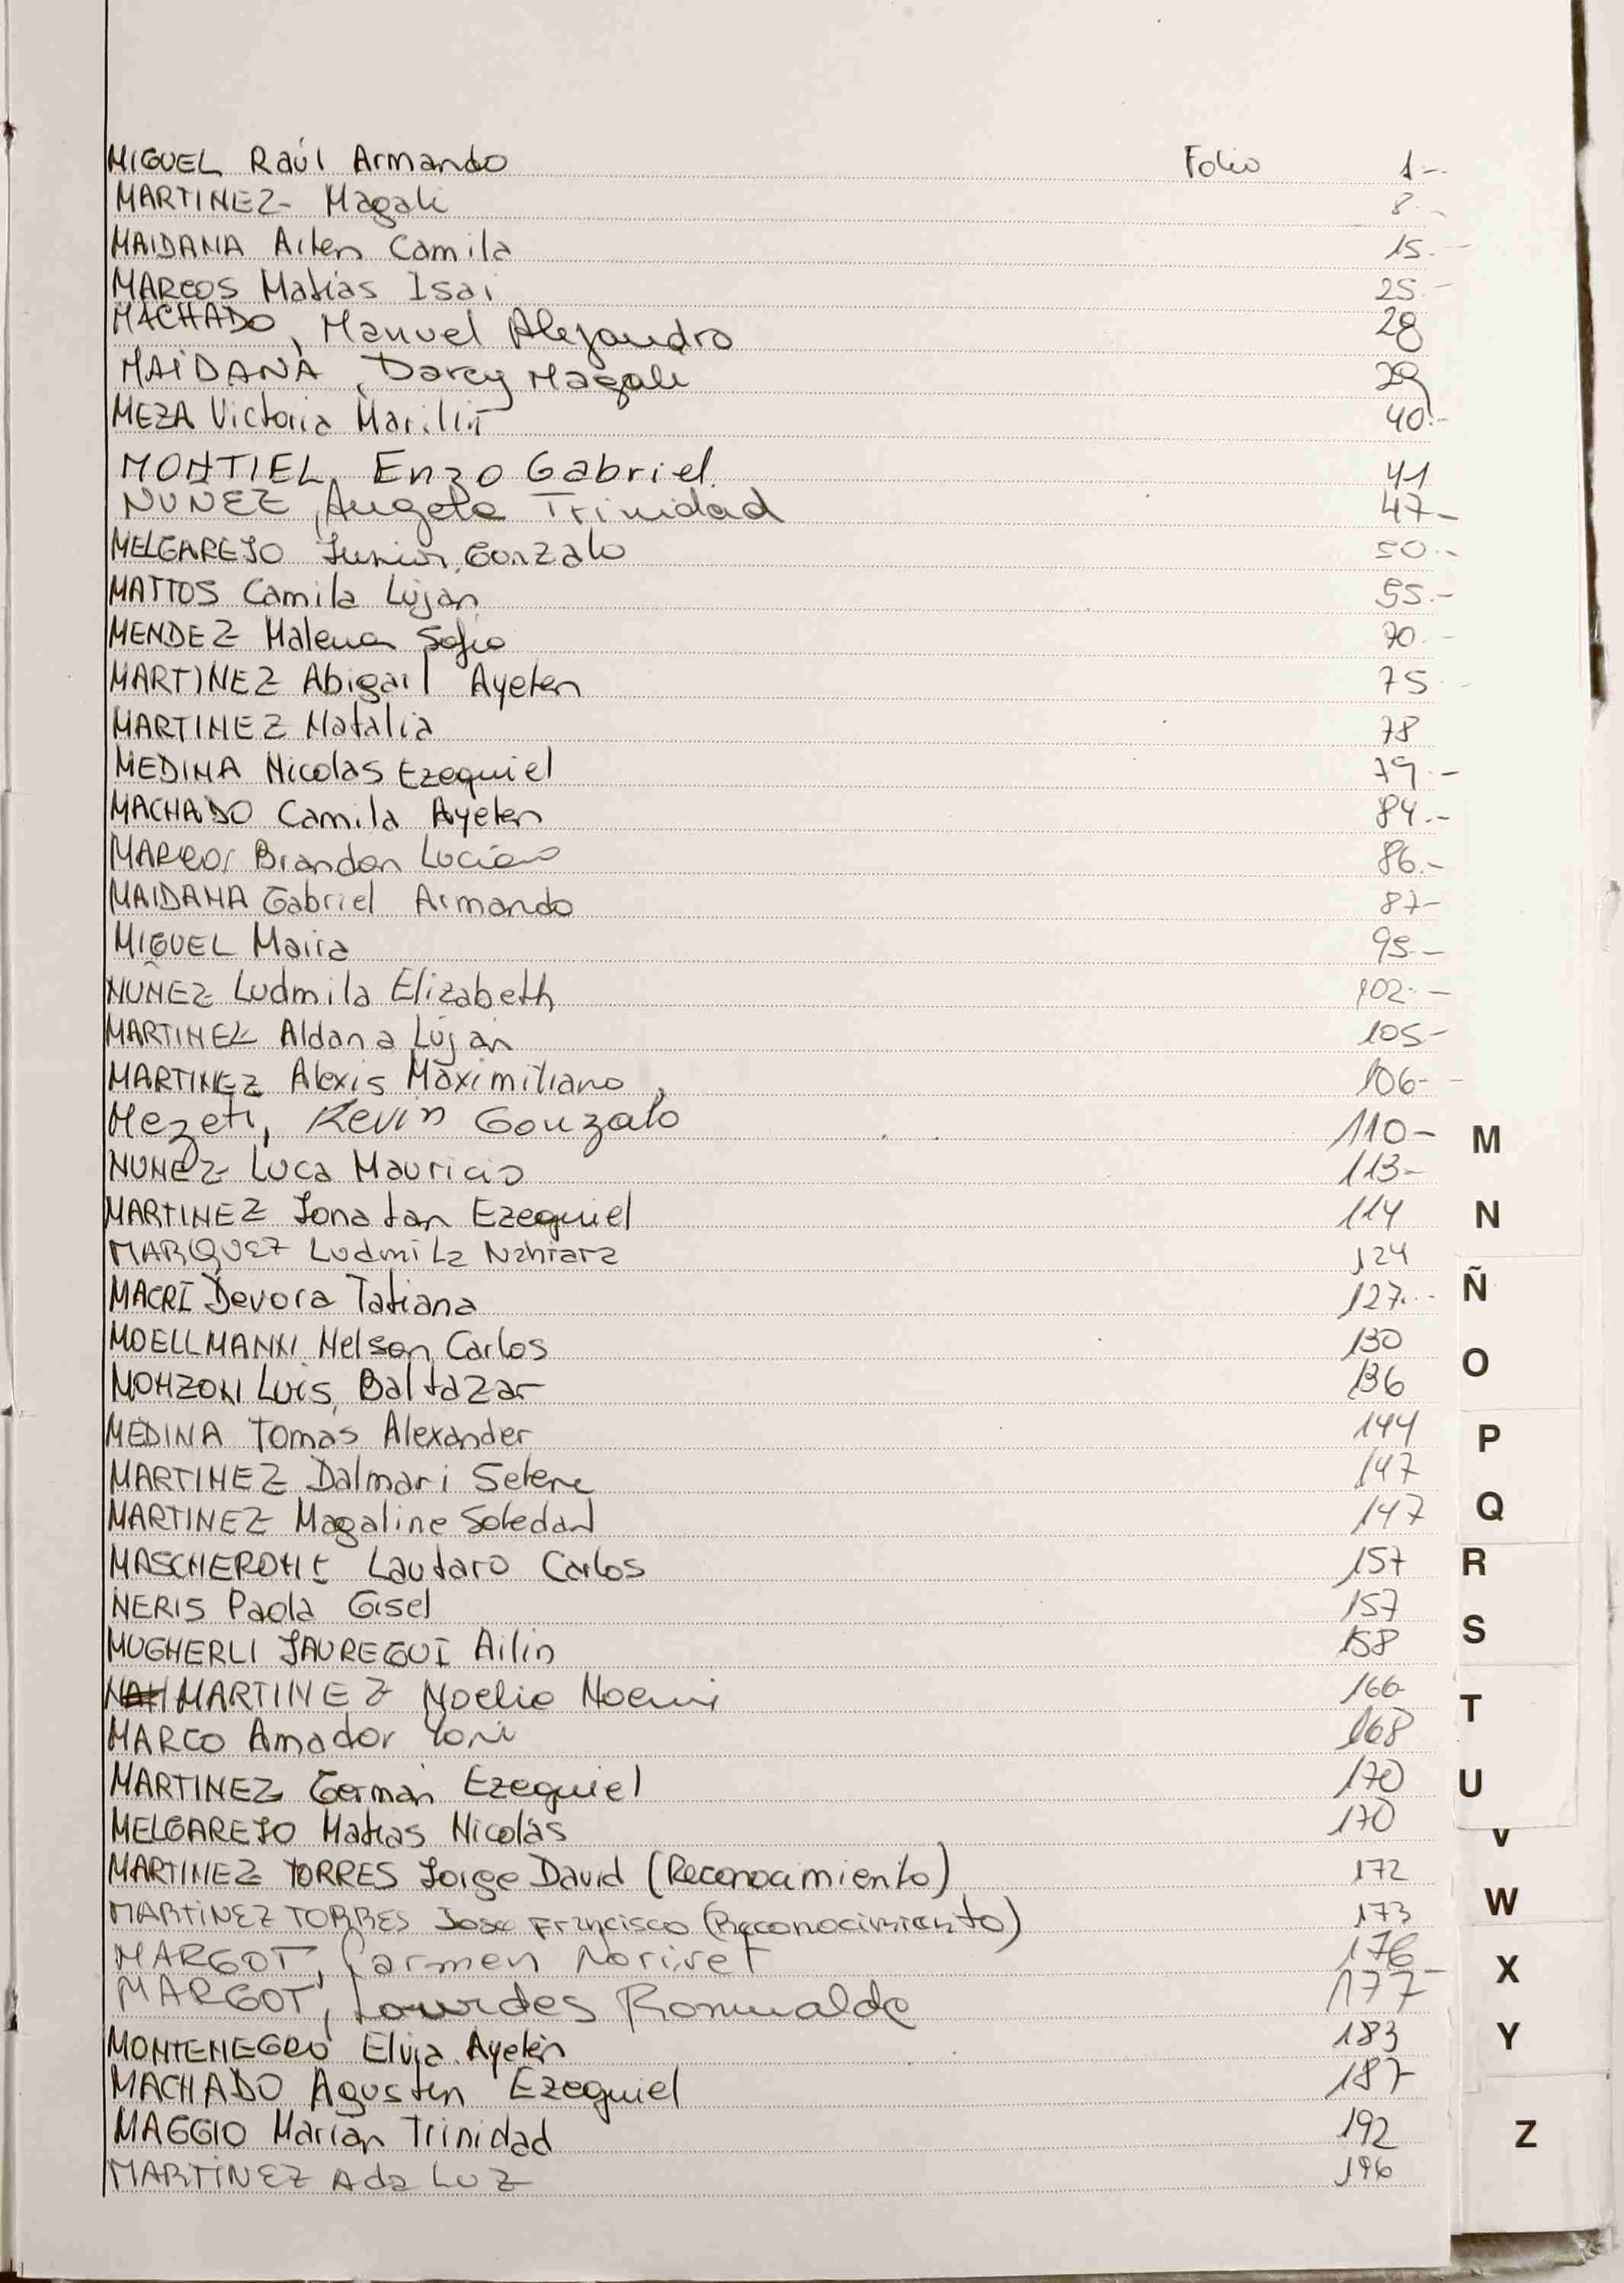 MIGUEL Raúl Armando Folio 1--
MARTINEZ- Magali 8.-
MAIDANA Ailen Camila 15.-
MARCOS Matías Isai 25.-
MACHADO, Manuel Alejandro 28
MAIDANA, Darcy Magali 29
MEZA Victoria Marilin 40.-
MONTIEL, Enzo Gabriel. 41
NUÑEZ, Angela Trinidad 47-
MELGAREJO Junior Gonzalo 50.-
MATTOS Camila Luján 55.-
MENDEZ Malena Sofia 70.-
MARTINEZ Abigail Ayelen 75-
MARTINEZ Natalia 78
MEDINA Nicolas Ezequiel 79.-
MACHADO Camila Ayelen 84.-
MARCOS Brandon Luciano 86.-
MAIDANA Gabriel Armando 87-
MIGUEL Maira 95--
NUÑEZ Ludmila Elizabeth 102.-
MARTINEZ Aldana Luján 105-
MARTINEZ Alexis Maximiliano 106--
Mezeti, Kevin Gonzalo 110-
NUNEZ Luca Mauricio 113-
MARTINEZ Jonatan Ezequiel 114
MARQUEZ Ludmila Nahiara 124
MACRI Devora Tatiana 127.-
MOELLMANN Nelson Carlos 130
MONZON Luis Baltazar 136
MEDINA Tomás Alexander 144
MARTINEZ Dalmari Selene 147
MARTINEZ Magaline Soledad 147
MASCHERONI Lautaro Carlos 157
NERIS Paola Gisel 157
MUGHERLI JAUREGUI Ailin 158
MARTINEZ Noelia Noemi 166
MARCO Amador Yoni 168
MARTINEZ Germán Ezequiel 170
MELGAREJO Matias Nicolás 170
MARTINEZ TORRES Jorge David (Reconocimiento) 172
MARTINEZ TORRES Jose Francisco (Reconocimiento) 173
MARGOT, Carmen 176
MARGOT, Lourdes Romualda 177-
MONTENEGRO Elvia Ayelén 183
MACHADO Agustin Ezequiel 187
MAGGIO Marian Trinidad 192
MARTINEZ Ada Luz 196
M
N
Ñ
O
P
Q
R
S
T
U
V
W
X
Y
Z